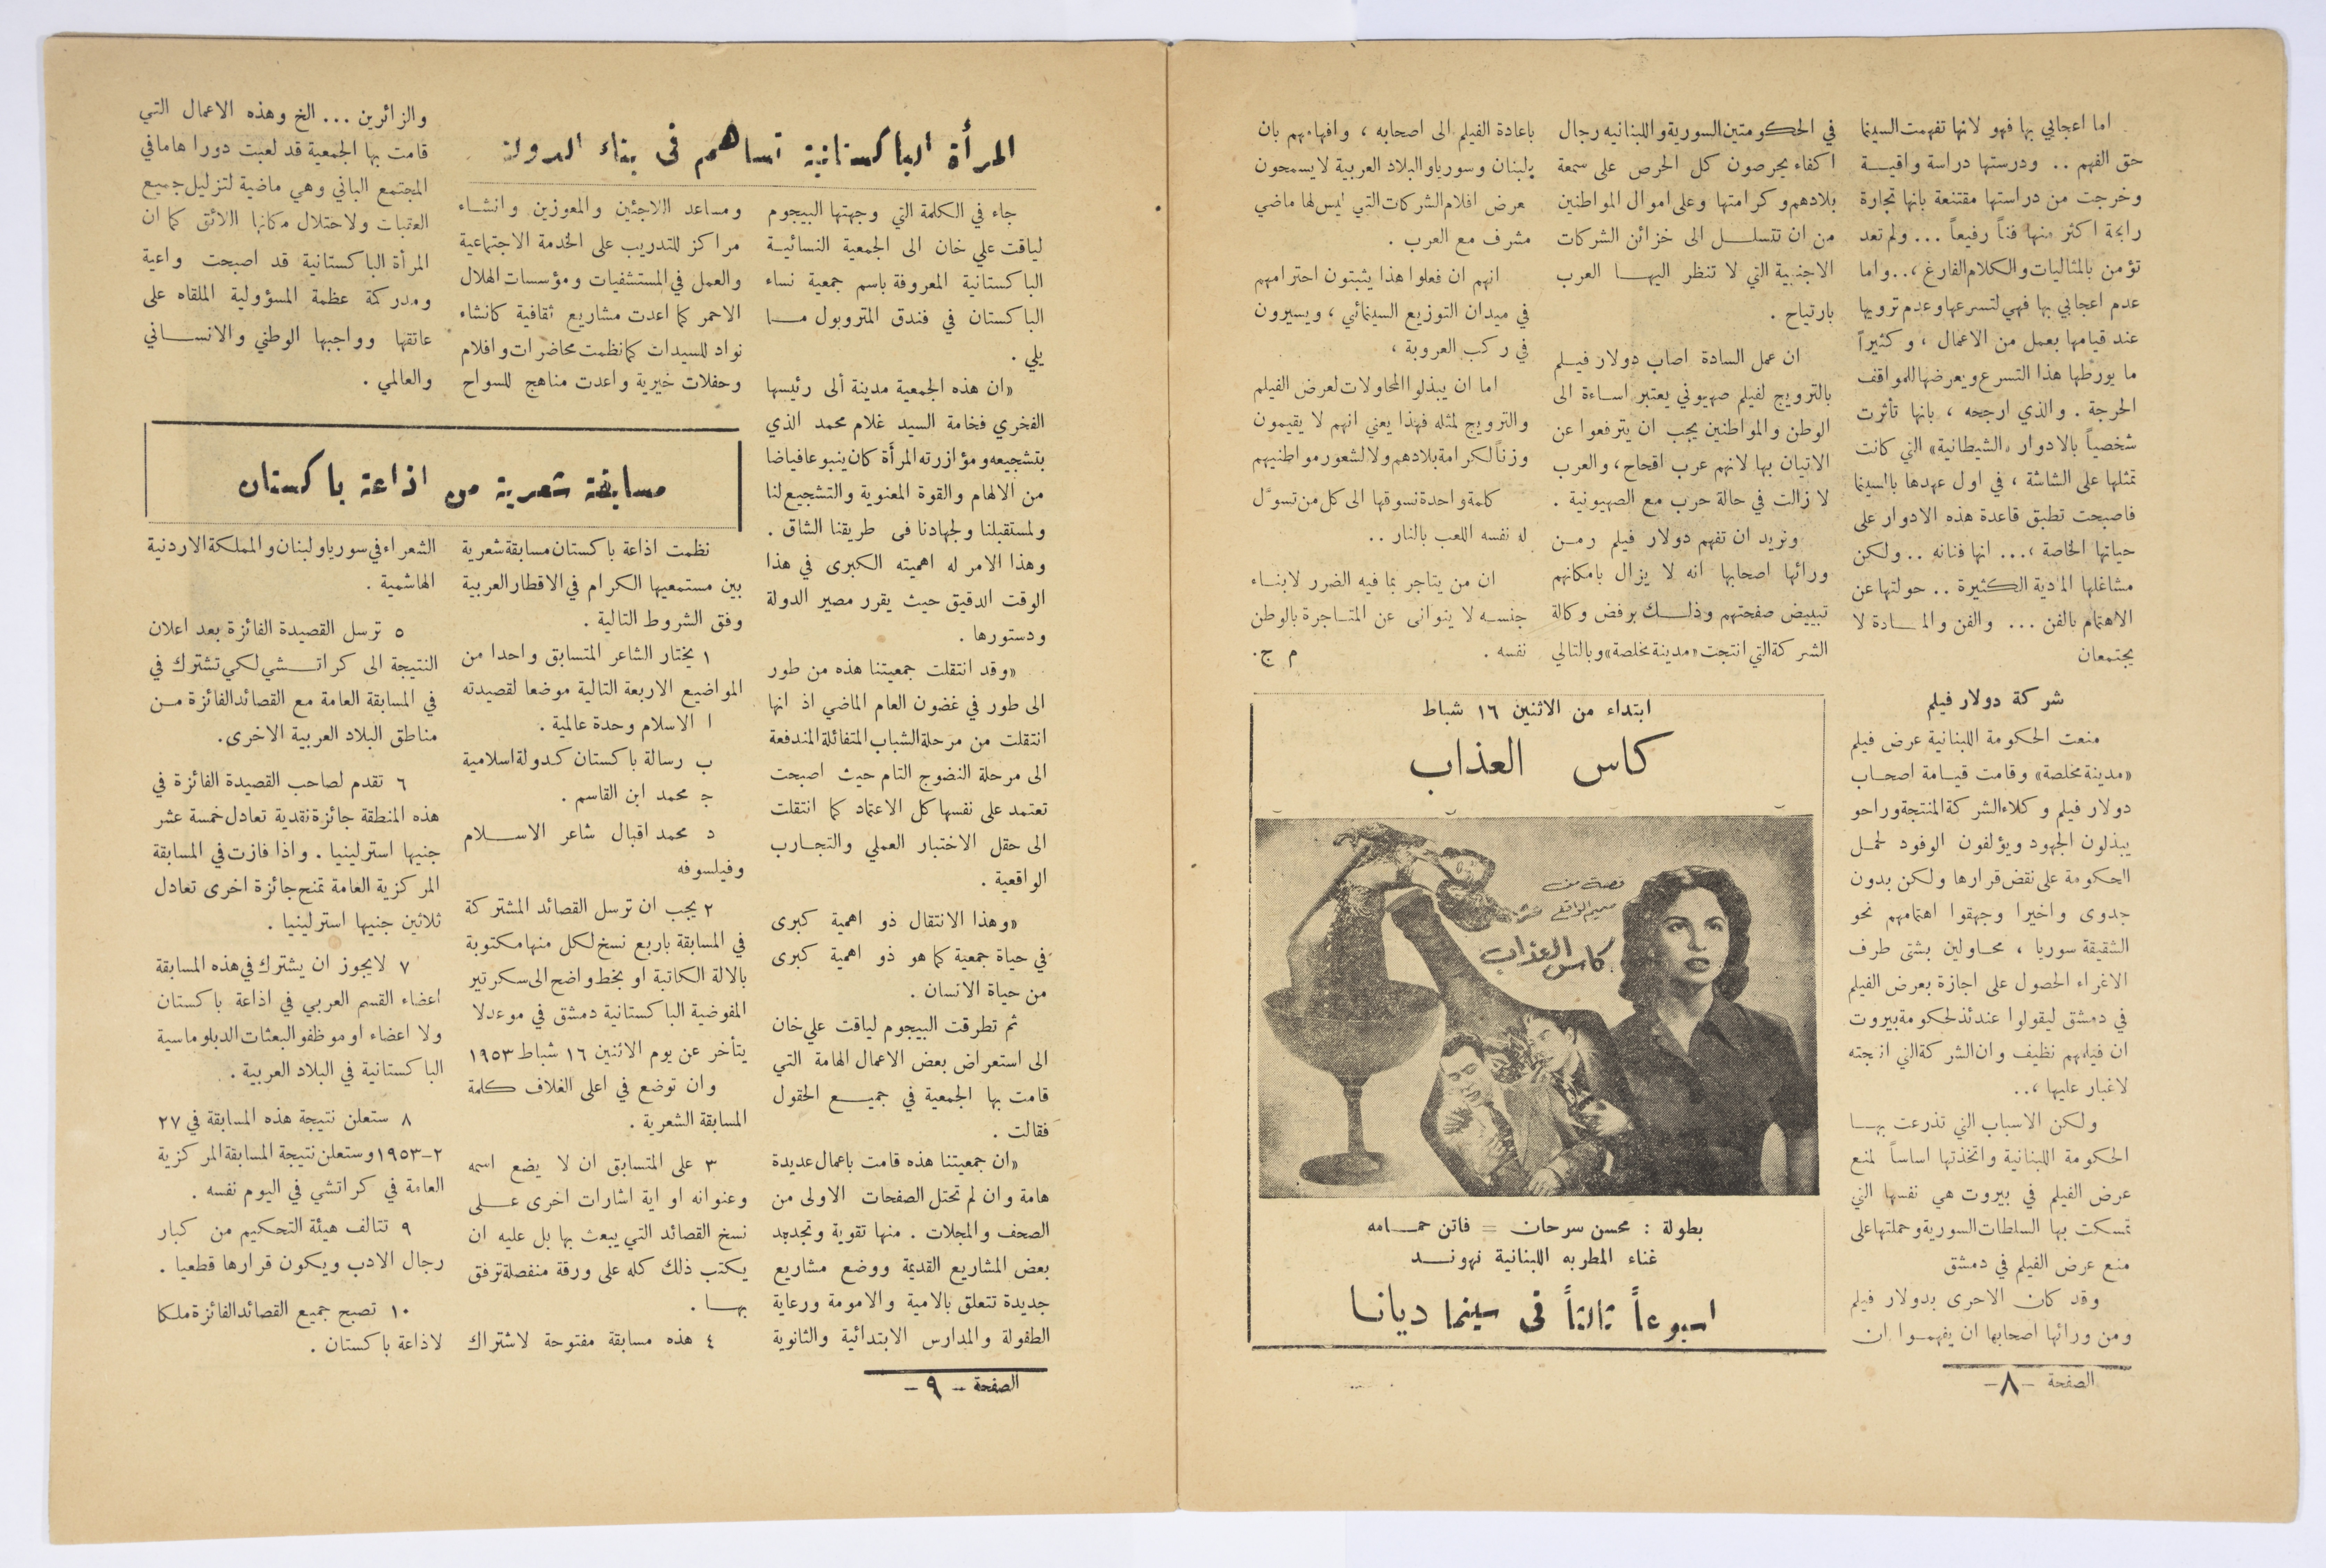 اما اعجابي بها فهو لانها تفهمت السينما
حق الفهم .. ودرستها دراسة وافيـة
وخرجت من دراستها مقتنعة بانها تجارة
رابحة اكثر منها فناً رفيعاً ... ولم تعد
تؤمن بالمثاليات والكلام الفارغ ،.. واما
عدم اعجابي بها فهي لتسرعها وعدم ترويها
عند قيامها بعمل من الاعمال ، وكثيراً
ما يورطها هذا التسرع ويعرضها للمواقف
الحرجة . والذي ارجحه ، بانها تأثرت
شخصياً بالادوار «الشيطانية» التي كانت
تمثلها على الشاشة ، في اول عهدها بالسينما
فاصبحت تطبق قاعدة هذه الادوار على
حياتها الخاصة ،... انها فنانه .. ولكن
مشاغلها المادية الكثيرة .. حولتها عن
الاهتمام بالفن ... والفن والمـادة لا
يجتمعان
شركة دولار فيلم
منعت الحكومة اللبنانية عرض فيلم
«مدينة مخلصة» وقامت قيـامة اصحـاب
دولار فيلم وكلاء الشركة المنتجة وراحو
يبذلون الجهود ويؤلفون الوفود لحمـل
الحكومة على نقض قرارها ولكن بدون
جدوى واخيرا وجهقوا اهتمامهم نحو
الشقيقة سوريا ، محـاولين بشتى طرف
الاغراء الحصول على اجازة بعرض الفيلم
في دمشق ليقولوا عندئذ لحكومة بيروت
ان فيلمهم نظيف وان الشركة التي انتجته
لاغبار عليها ،..
ولكن الاسباب التي تذرعت بهـا
الحكومة اللبنانية واتخذتها اساساً لمنع
عرض الفيلم في بيروت هي نفسها التي
تمسكت بها السلطات السورية وحملتها على
منع عرض الفيلم في دمشق
وقد كان الاحرى بدولار فيلم
ومن ورائها اصحابها ان يفهمـوا ان
الصفحة -٨-
في الحكومتين السورية واللبنانيه رجال
اكفاء يحرصون كل الحرص على سمعة
بلادهم وكرامتها وعلى اموال المواطنين
من ان تتسلـل الى خزائن الشركات
الاجنبية التي لا تنظر اليهـا العرب
بارتياح .
ان عمل السادة اصاب دولار فيـلم
بالترويج لفيلم صهيوني يعتبر اسـاءة الى
الوطن والمواطنين يجب ان يترفعوا عن
الاتيان بها لانهم عرب اقحاح ، والعرب
لا زالت في حالة حرب مع الصهيونية .
ونريد ان تفهم دولار فيلم ومـن
ورائها اصحابها انه لا يزال بامكانهم
تبييض صفحتهم وذلـك برفض وكالة
الشركة التي انتجت «مدينة مخلصة» وبالتالي
باعادة الفيلم الى اصحابه ، وافهامهم بان
بلبنان وسوريا والبلاد العربية لا يسمحون
عرض افلام الشركات التي ليس لها ماضي
مشرف مع العرب .
انهم ان فعلوا هذا يثبتون احترامهم
في ميدان التوزيع السينمائي ، ويسيرون
في ركب العروبة ،
اما ان يبذلوا المحاولات لعرض الفيلم
والترويج لمثله فهذا يعني انهم لا يقيمون
وزناً لكرامة بلادهم ولا لشعور مواطنيهم
كلمة واحدة نسوقها الى كل من تسوّل
له نفسه اللعب بالنار ..
ان من يتاجر بما فيه الضرر لابنـاء
جنسـه لا يتوانى عن المتـاجرة بالوطن
نفسه . م ج.
ابتداء من الاثنين ١٦ شباط
كاس العذاب
قصة من
صميم الواقع
كاس العذاب
بطولة : محسن سرحان = فاتن حمـامه
غناء المطربه اللبنانية نهونـد
اسبوعاً ثالثاً في سينما ديانا
المرأة الباكستانية تساهم في بناء الدولة
جاء في الكلمة التي وجهتها البيجوم
لياقت علي خان الى الجمعية النسائيـة
الباكستانية المعروفة باسم جمعية نساء
الباكستان في فندق المتروبول مـا
يلي .
«ان هذه الجمعية مدينة ألى رئيسها
الفخري فخامة السيد غلام محمد الذي
بتشجيعه ومؤازرته المرأة كان ينبوعا فياضا
من الالهام والقوة المعنوية والتشجيع لنا
ولمستقبلنا ولجهادنا في طريقنا الشاق .
وهذا الامر له اهميته الكبرى في هذا
الوقت الدقيق حيث يقرر مصير الدولة
ودستورها .
«وقد انتقلت جمعيتنا هذه من طور
الى طور في غضون العام الماضي اذ انها
انتقلت من مرحلة الشباب المتفائلة المندفعة
الى مرحلة النضوج التام حيث اصبحت
تعتمد على نفسها كل الاعتماد كما انتقلت
الى حقل الاختبار العملي والتجـارب
الواقعية .
«وهذا الانتقال ذو اهمية كبرى
في حياة جمعية كما هو ذو اهمية كبرى
من حياة الانسان .
ثم تطرقت البيجوم لياقت علي خان
الى استعراض بعض الاعمال الهامة التي
قامت بها الجمعية في جميـع الحقول
فقالت .
«ان جمعيتنا هذه قامت باعمال عديدة
هامة وان لم تحتل الصفحات الاولى من
الصحف والمجلات . منها تقوية وتجديد
بعض المشاريع القديمة ووضع مشاريع
جديدة تتعلق بالامية والامومة ورعاية
الطفولة والمدارس الابتدائية والثانوية
الصفحة - ٩ -
ومساعد اللاجئين والمعوزين وانشـاء
مراكز للتدريب على الخدمة الاجتماعية
والعمل في المستشفيات ومؤسسات الهلال
الاحمر كما اعدت مشاريع ثقافية كانشاء
نواد للسيدات كما نظمت محاضرات وافلام
وحفلات خيرية واعدت مناهج للسواح
والزائرين ... الخ وهذه الاعمال التي
قامت بها الجمعية قد لعبت دورا هاما في
المجتمع الباني وهي ماضية لتزليل جميع
العقبات ولاحتلال مكانها اللائق كما ان
المرأة الباكستانية قد اصبحت واعية
ومدركة عظمة المسؤولية الملقاه على
عاتقها وواجبها الوطني والانسـاني
والعالمي .
مسابقة شعرية من اذاعة باكستان
نظمت اذاعة باكستان مسابقة شعرية
بين مستمعيها الكرام في الاقطار العربية
وفق الشروط التالية .
١ يختار الشاعر المتسابق واحدا من
المواضيع الاربعة التالية موضعا لقصيدته
ا الاسلام وحدة عالمية .
ب رسالة باكستان كدولة اسلامية
ج محمد ابن القاسم .
د محمد اقبال شاعر الاسـلام
وفيلسوفه
٢ يجب ان ترسل القصائد المشتركة
في المسابقة باربع نسخ لكل منها مكتوبة
بالالة الكاتبة او بخط واضح الى سكرتير
المفوضية الباكستانية دمشق في موعد لا
يتأخر عن يوم الاثنين ١٦ شباط ١٩٥٣
وان توضع في اعلى الغلاف كلمة
المسابقة الشعرية .
٣ على المتسابق ان لا يضع اسمه
وعنوانه او اية اشارات اخرى عـلى
نسخ القصائد التي يبعث بها بل عليه ان
يكتب ذلك كله على ورقة منفصلة ترفق
بهـا .
٤ هذه مسابقة مفتوحة لاشتراك
الشعراء في سوريا ولبنان والمملكة الاردنية
الهاشمية .
٥ ترسل القصيدة الفائزة بعد اعلان
النتيجة الى كراتـشي لكي تشترك في
في المسابقة العامة مع القصائد الفائزة مـن
مناطق البلاد العربية الاخرى.
٦ تقدم لصاحب القصيدة الفائزة في
هذه المنطقة جائزة نقدية تعادل خمسة عشر
جنيها استرلينيا . واذا فازت في المسابقة
المركزية العامة تمنح جائزة اخرى تعادل
ثلاثين جنيها استرلينيا .
٧ لايجوز ان يشترك في هذه المسابقة
اعضاء القسم العربي في اذاعة باكستان
ولا اعضاء او موظفو البعثات الدبلوماسية
الباكستانية في البلاد العربية .
٨ ستعلن نتيجة هذه المسابقة في ٢٧
٢-١٩٥٣ وستعلن نتيجة المسابقة المركزية
العامة في كراتشي في اليوم نفسه .
٩ تتالف هيئة التحكيم من كبار
رجال الادب ويكون قرارها قطعيا .
١٠ تصبح جميع القصائد الفائزة ملكا
لاذاعة باكستان .